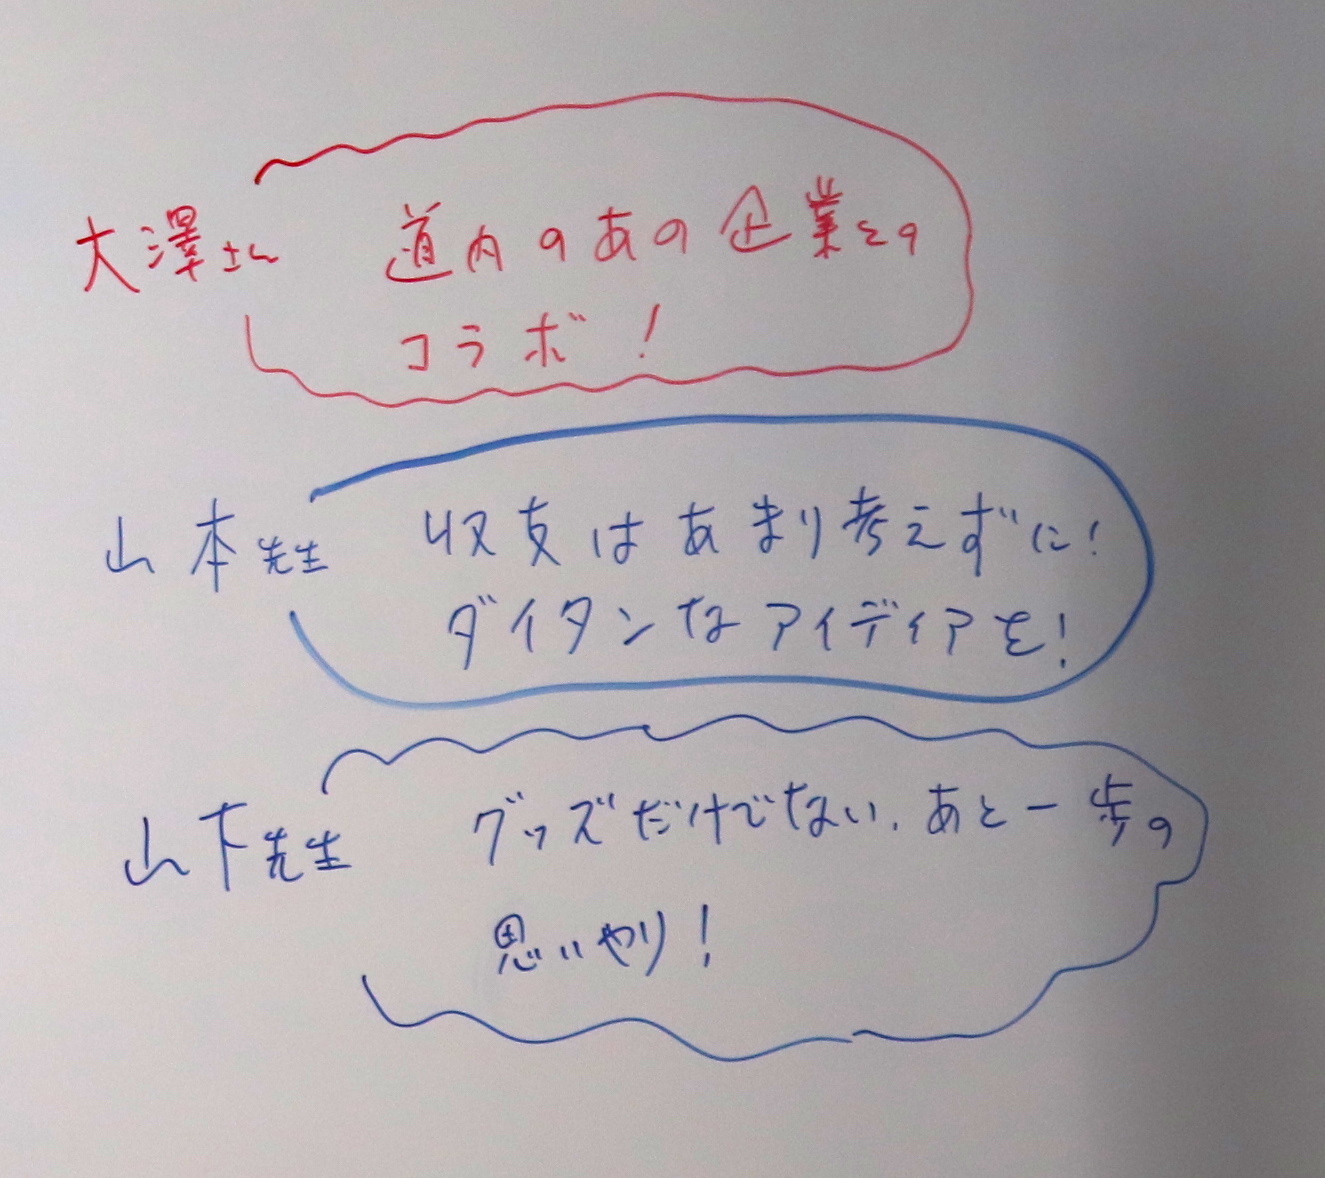 大澤さん
道内のあの企業との
コラボ!
山本先生
収支はあまり考えずに!
ダイタンなアイディアを!
山下先生
グッズだけでない、あと一歩の
思いやり!